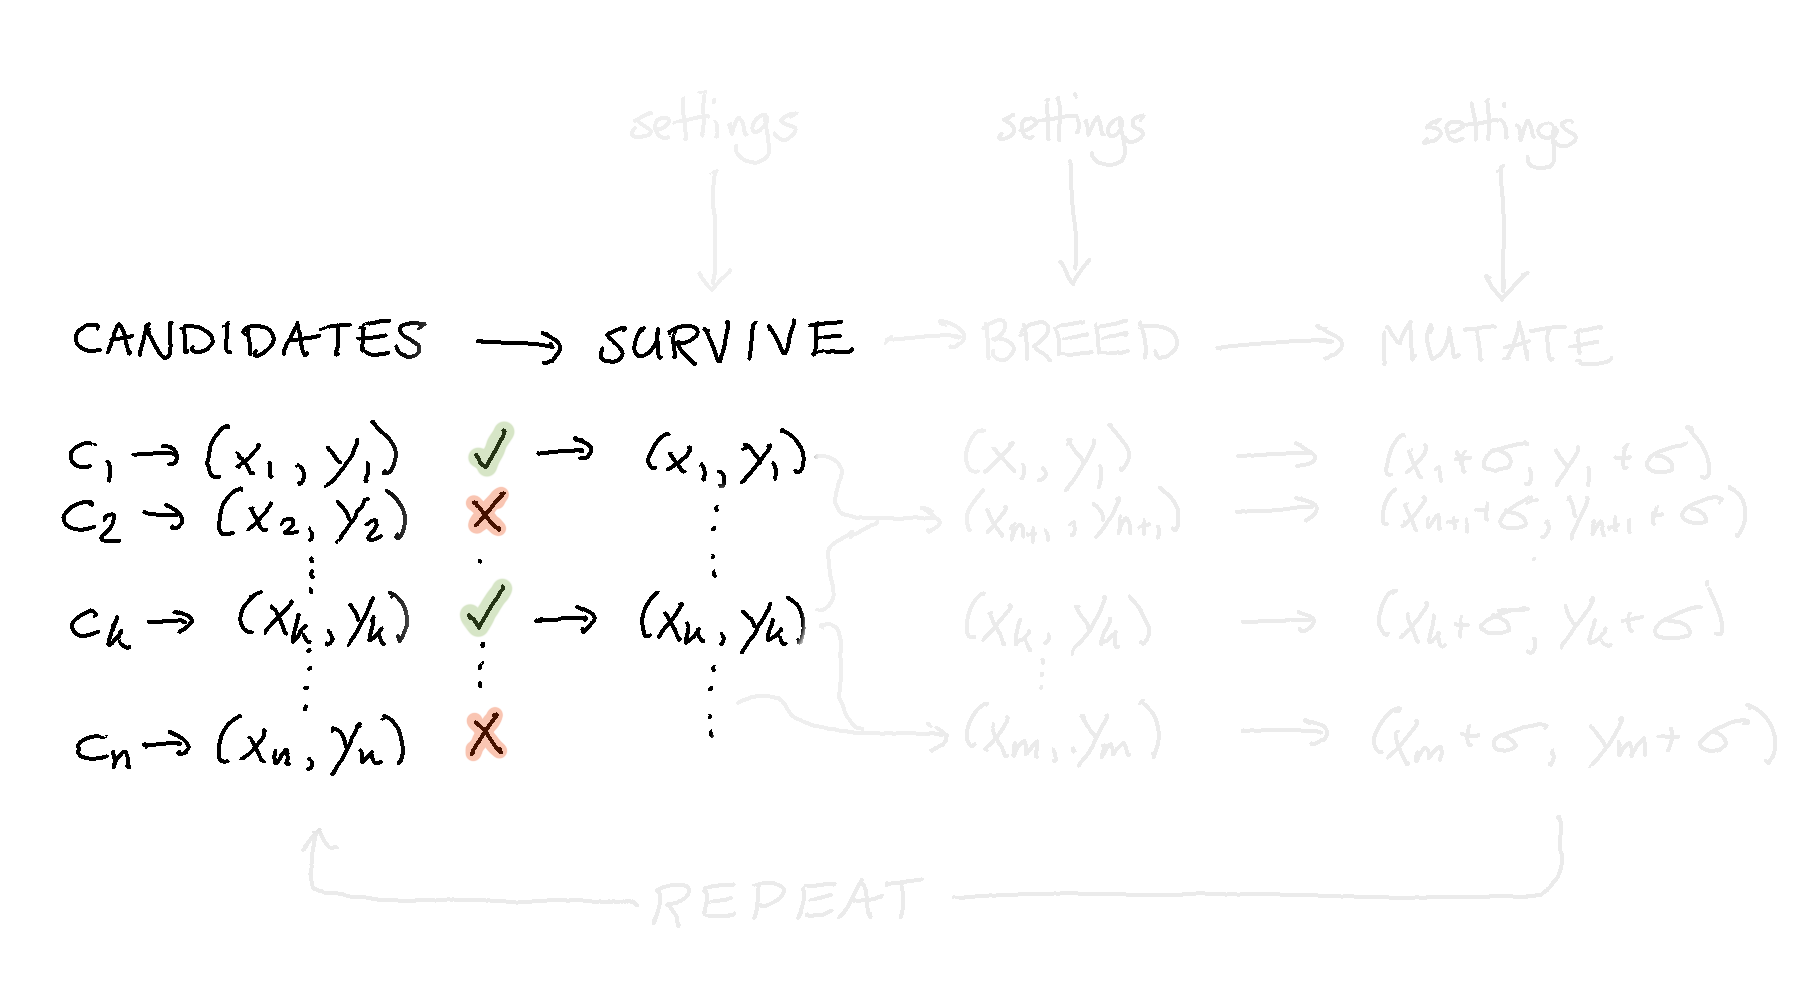 settings settings settings
CANDIDATES → SURVIVE → BREED → MUTATE
c₁ → (x₁, y₁) ✓ → (x₁, y₁) (x₁, y₁) → (x₁+σ, y₁+σ)
c₂ → (x₂, y₂) ✗ (xₙ₊₁, yₙ₊₁) → (xₙ₊₁+σ, yₙ₊₁+σ)
cₖ → (xₖ, yₖ) ✓ → (xₖ, yₖ) (xₖ, yₖ) → (xₖ+σ, yₖ+σ)
cₙ → (xₙ, yₙ) ✗ (xₘ, yₘ) → (xₘ+σ, yₘ+σ)
REPEAT